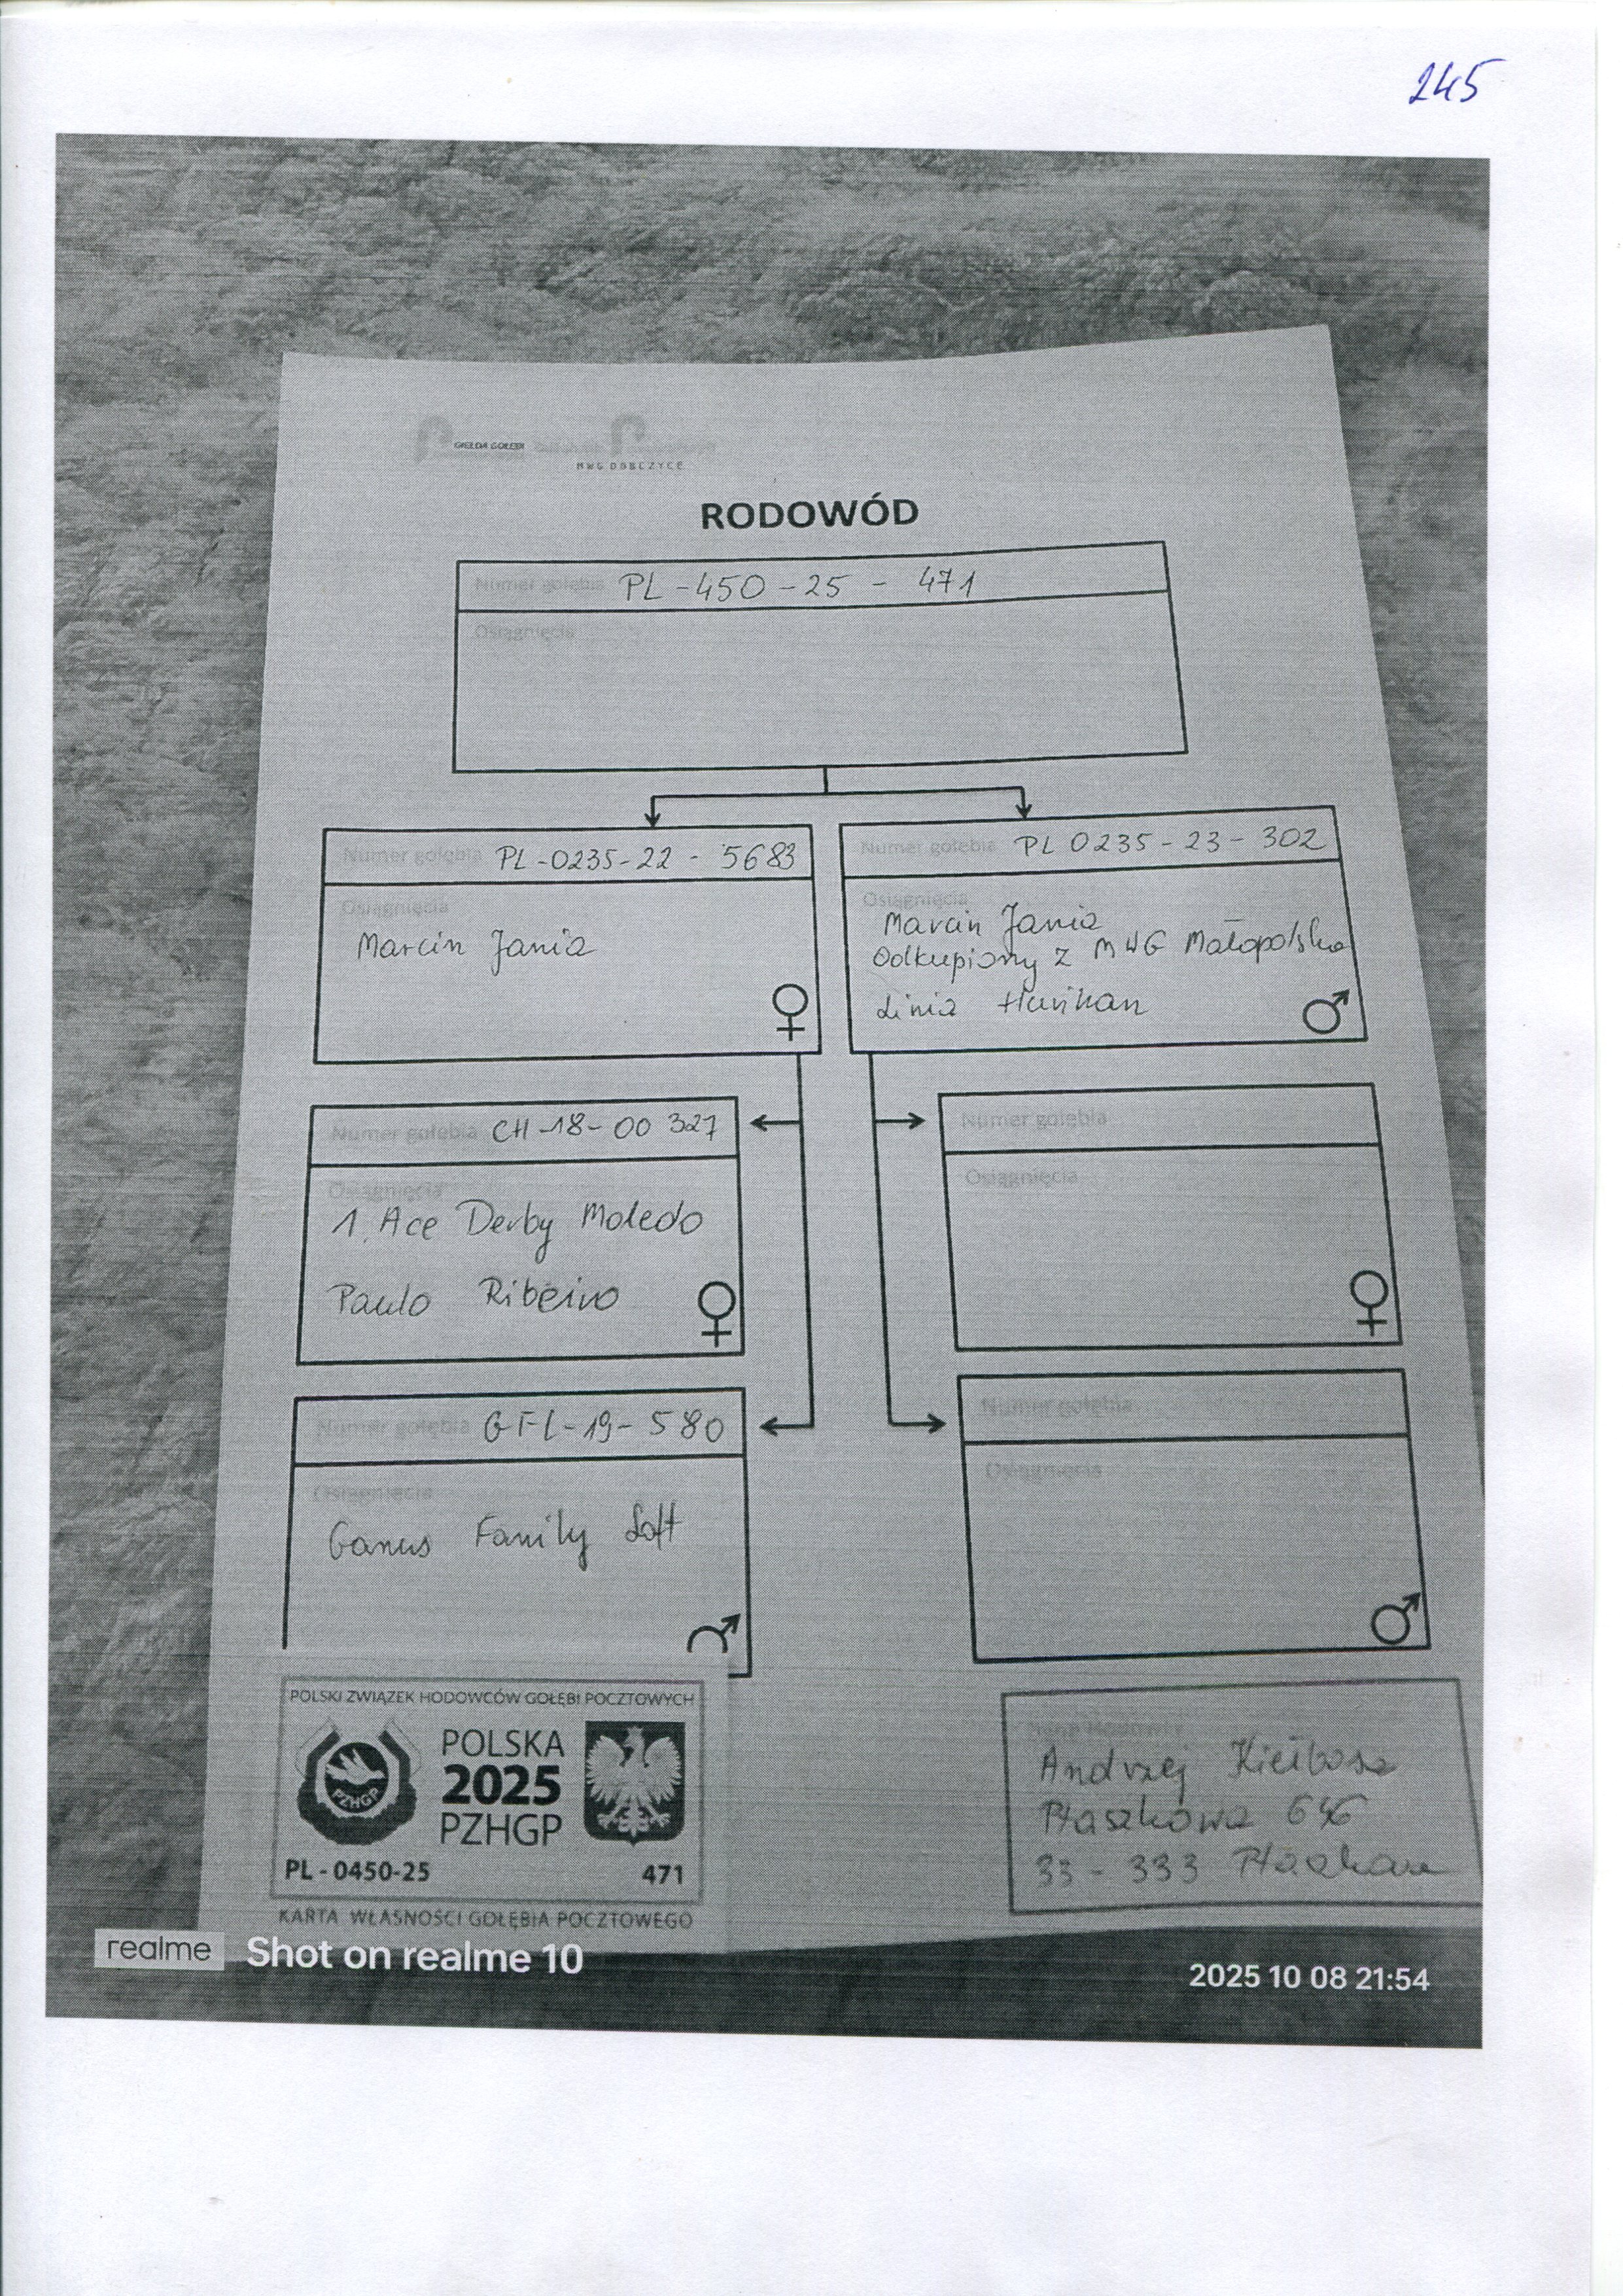 245
GIEŁDA GOŁĘBI
MWG DOBCZYCE
RODOWÓD
Numer gołębia PL-450-25 - 471
Osiągnięcia
Numer gołębia PL-0235-22 - 5683
Osiągnięcia
Marcin Jania
♀
Numer gołębia PL 0235-23-302
Osiągnięcia
Marcin Jania
Odkupiony z MWG Małopolska
Linia Hurikan
♂
Numer gołębia CH-18-00 327
Osiągnięcia
1. Ace Derby Moledo
Paulo Ribeiro
♀
Numer gołębia
Osiągnięcia
♀
Numer gołębia GFL-19-580
Osiągnięcia
Ganus Family Loft
♂
Numer gołębia
Osiągnięcia
♂
POLSKI ZWIĄZEK HODOWCÓW GOŁĘBI POCZTOWYCH
PZHGP
POLSKA
2025
PZHGP
PL - 0450-25 471
KARTA WŁASNOŚCI GOŁĘBIA POCZTOWEGO
Andrzej Kiełbasa
Ptaszkowa 646
33-333 Ptaszkowa
realme Shot on realme 10
2025 10 08 21:54